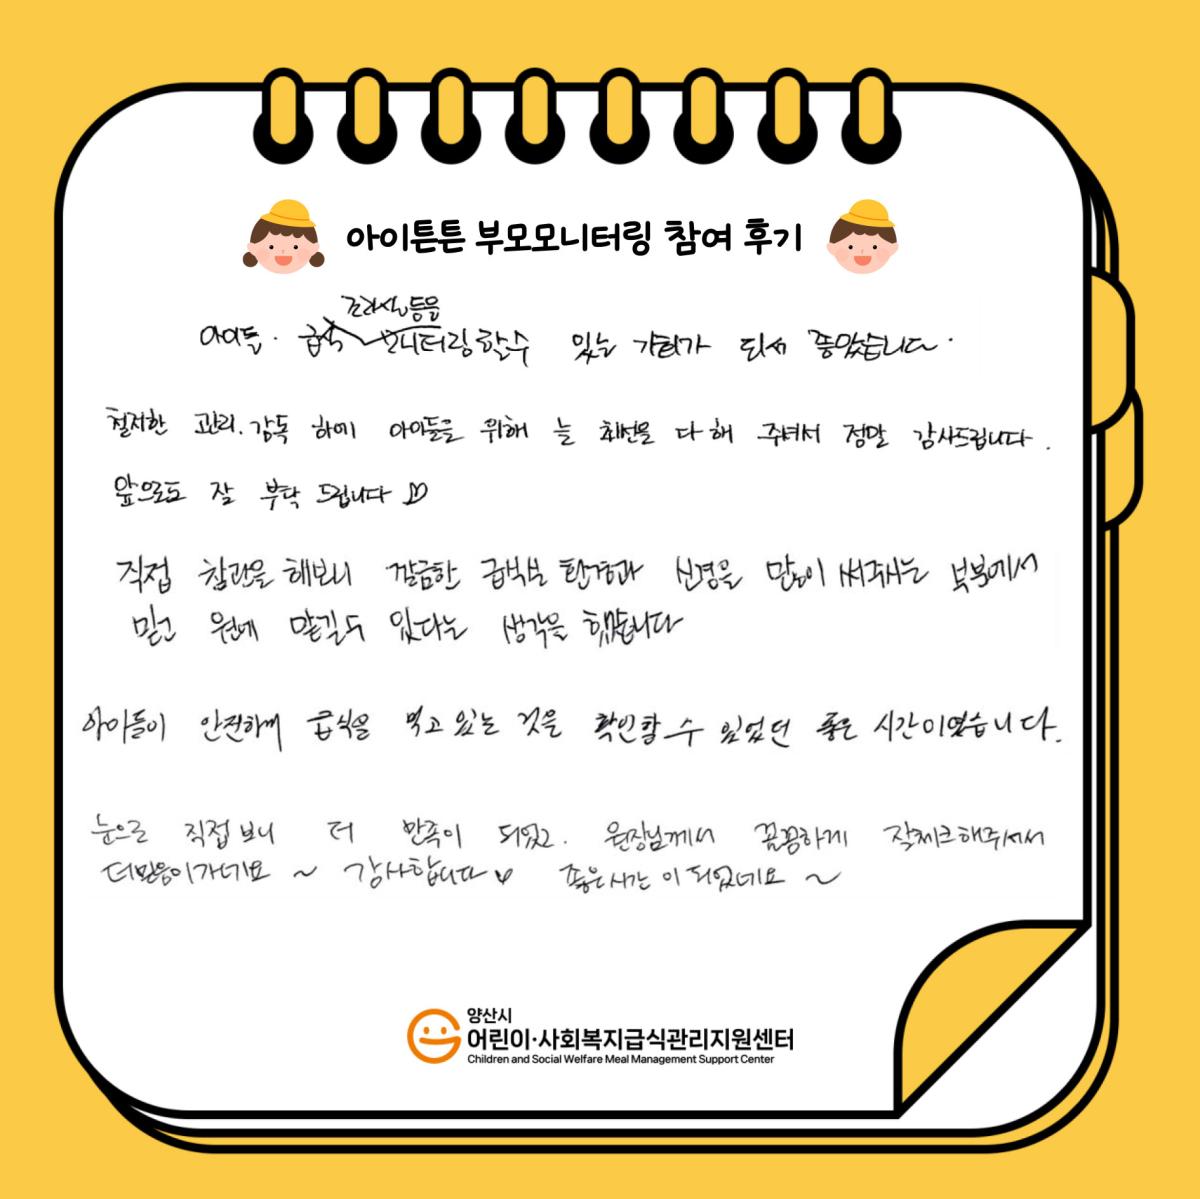 아이튼튼 부모모니터링 참여 후기
조리실 등을
아이들. 급식 모니터링 할수 있는 기회가 되서 좋았습니다.
철저한 관리.감독 하에 아이들을 위해 늘 최선을 다해 주셔서 정말 감사드립니다.
앞으로도 잘 부탁 드립니다♡
직접 참관을 해보니 깔끔한 급식실 환경과 신경을 많이 써주시는 부분에서
믿고 원에 맡길 수 있다는 생각을 했습니다
아이들이 안전하게 급식을 먹고 있는 것을 확인할 수 있었던 좋은 시간이였습니다.
눈으로 직접 보니 더 만족이 되었고. 원장님께서 꼼꼼하게 잘체크해주셔서
더믿음이가네요 ~ 감사합니다♥ 좋은시간 이 되었네요 ~
양산시
어린이·사회복지급식관리지원센터
Children and Social Welfare Meal Management Support Center